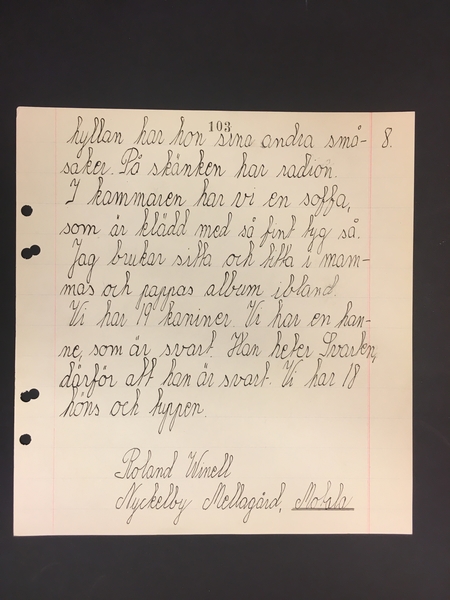 103
hyllan har hon sina andra små- 8.
saker. På skänken har radion.
I kammaren har vi en soffa,
som är klädd med så fint tyg så.
Jag brukar sitta och titta i mam-
mas och pappas album ibland.
Vi har 19 kaniner. Vi har en han-
ne, som är svart. Han heter Svarten,
därför att han är svart. Vi har 18
höns och tuppen.
Roland Winell
Nyckelby Mellagård,